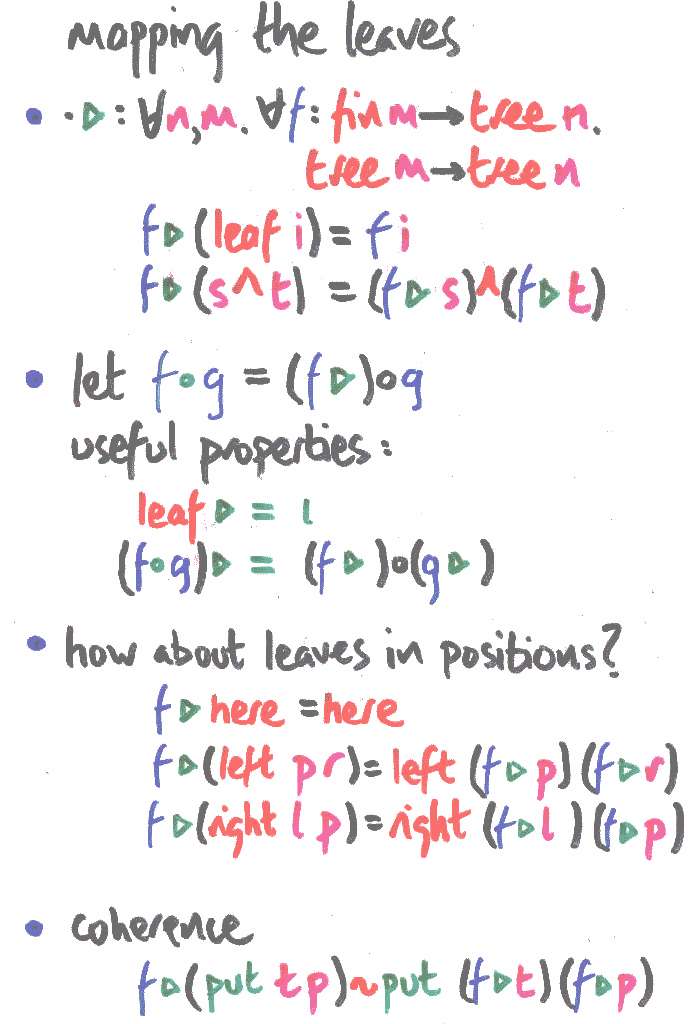 mapping the leaves
• · ▷ : ∀n,m. ∀f : fin m → tree n.
tree m → tree n
f ▷ (leaf i) = f i
f ▷ (s ^ t) = (f ▷ s) ^ (f ▷ t)
• let f ∘ g = (f ▷) ∘ g
useful properties:
leaf ▷ = ι
(f ∘ g) ▷ = (f ▷) ∘ (g ▷)
• how about leaves in positions?
f ▷ here = here
f ▷ (left p r) = left (f ▷ p) (f ▷ r)
f ▷ (right l p) = right (f ▷ l) (f ▷ p)
• coherence
f ▷ (put t p) ~ put (f ▷ t) (f ▷ p)